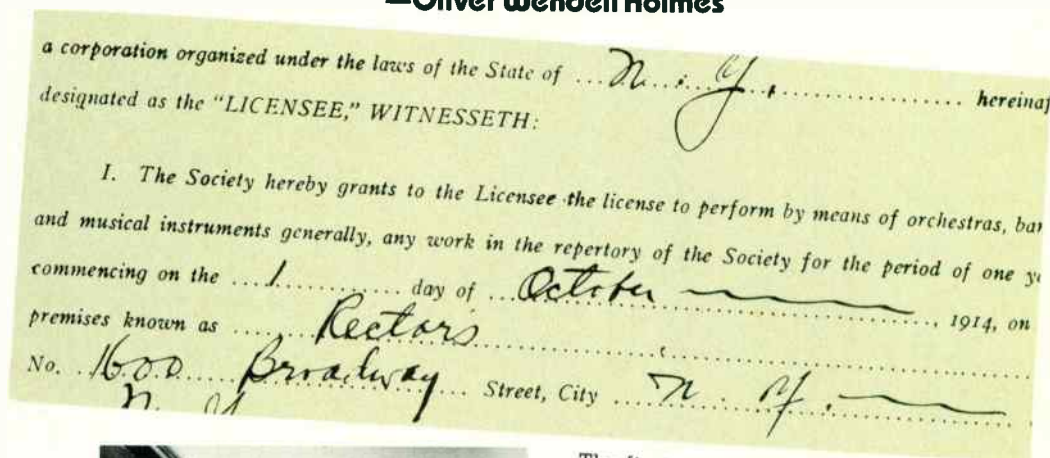 —Oliver Wendell Holmes
a corporation organized under the laws of the State of ...N. Y. .................... hereinaf
designated as the "LICENSEE," WITNESSETH:
I. The Society hereby grants to the Licensee the license to perform by means of orchestras, ban
and musical instruments generally, any work in the repertory of the Society for the period of one ye
commencing on the ...1............. day of ...October ...................., 1914, on
premises known as ......Rectors........................................
No. .1600 Broadway.... Street, City ....N. Y. ....................
N. Y.